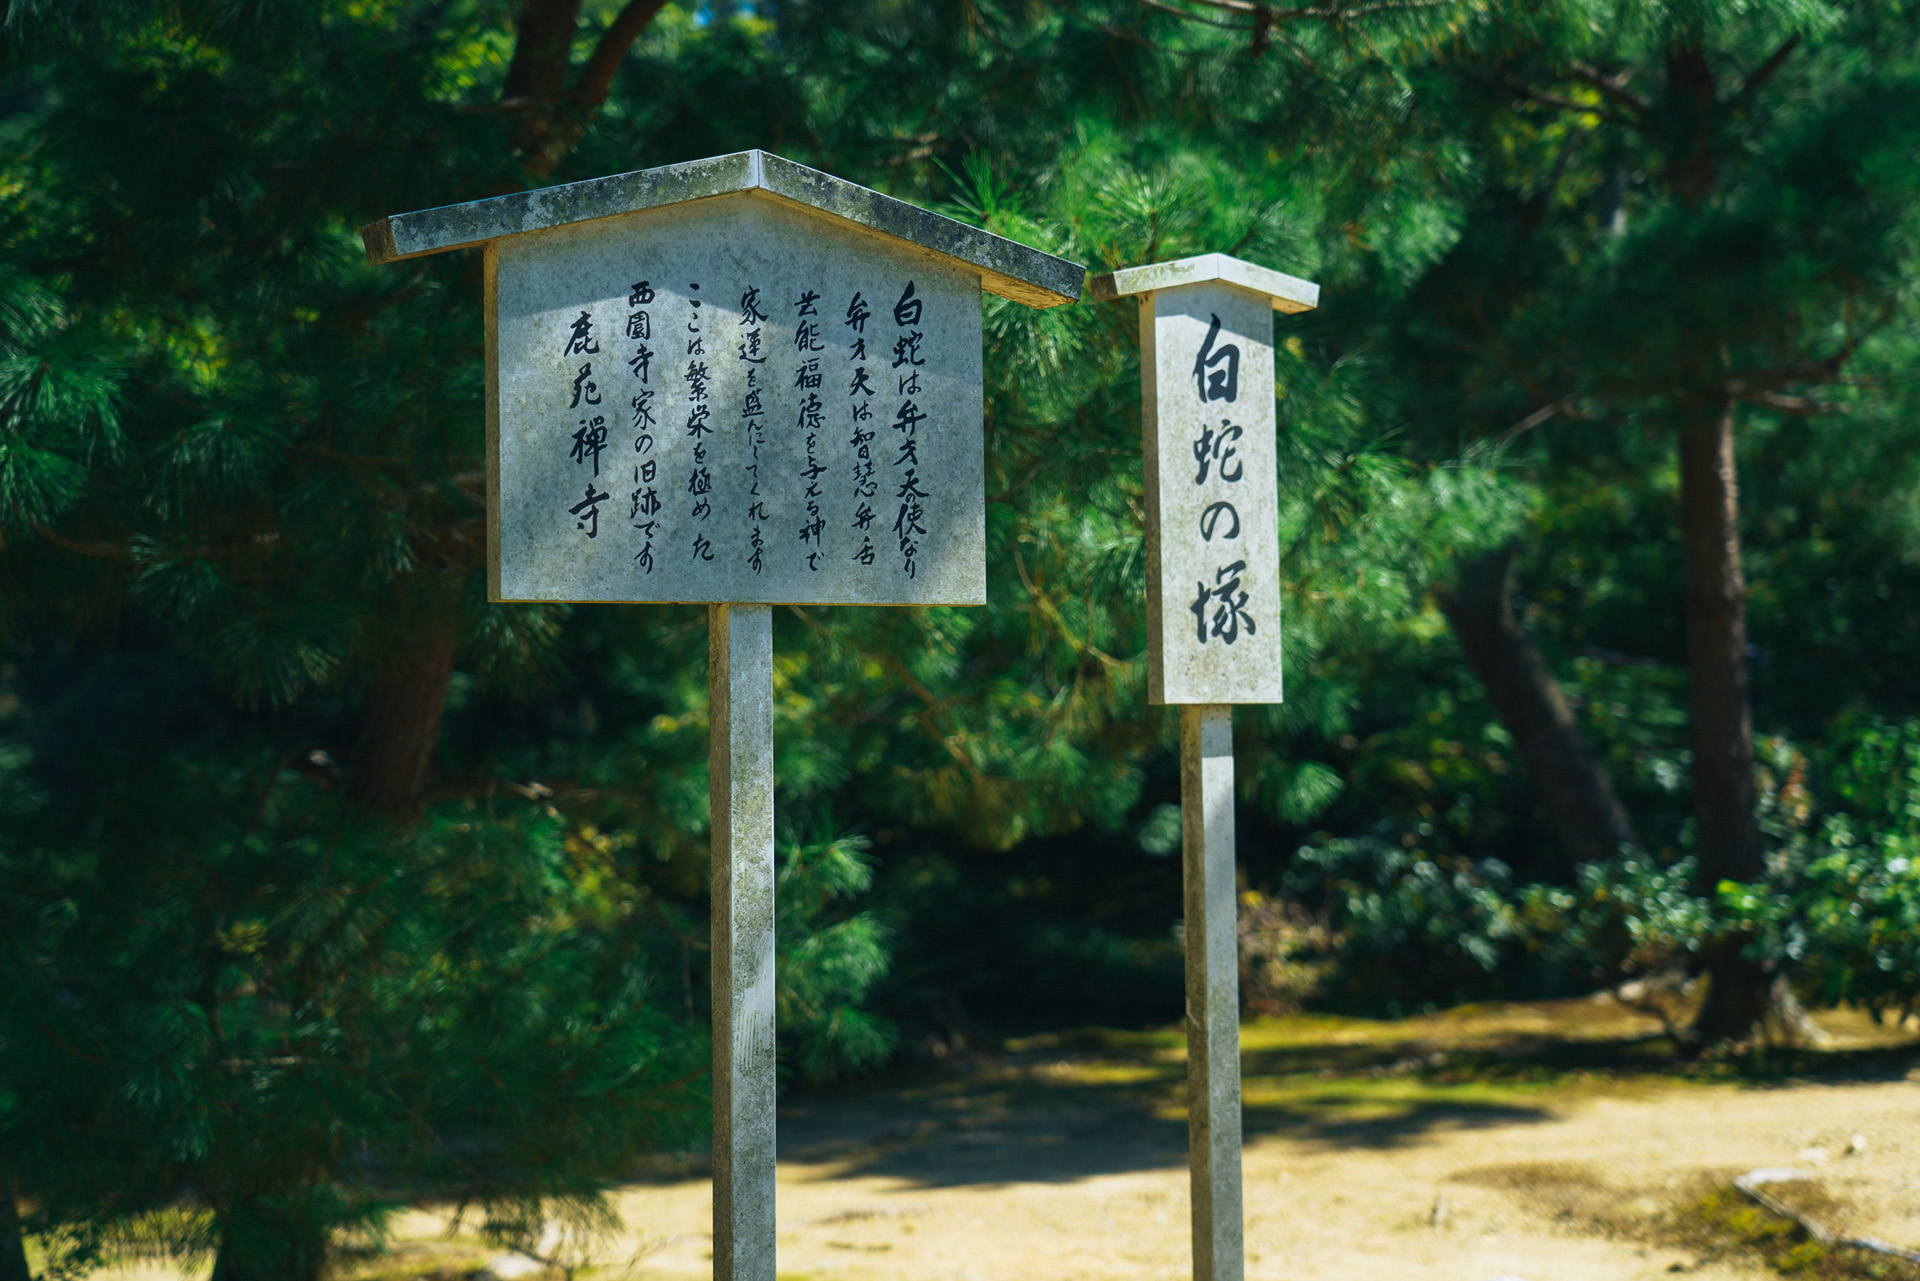 白蛇は弁才天の使なり
弁才天は智慧弁舌
芸能福徳を与える神で
家運を盛んにしてくれます
ここは繁栄を極めた
西園寺家の旧跡です
鹿苑禅寺
白蛇の塚